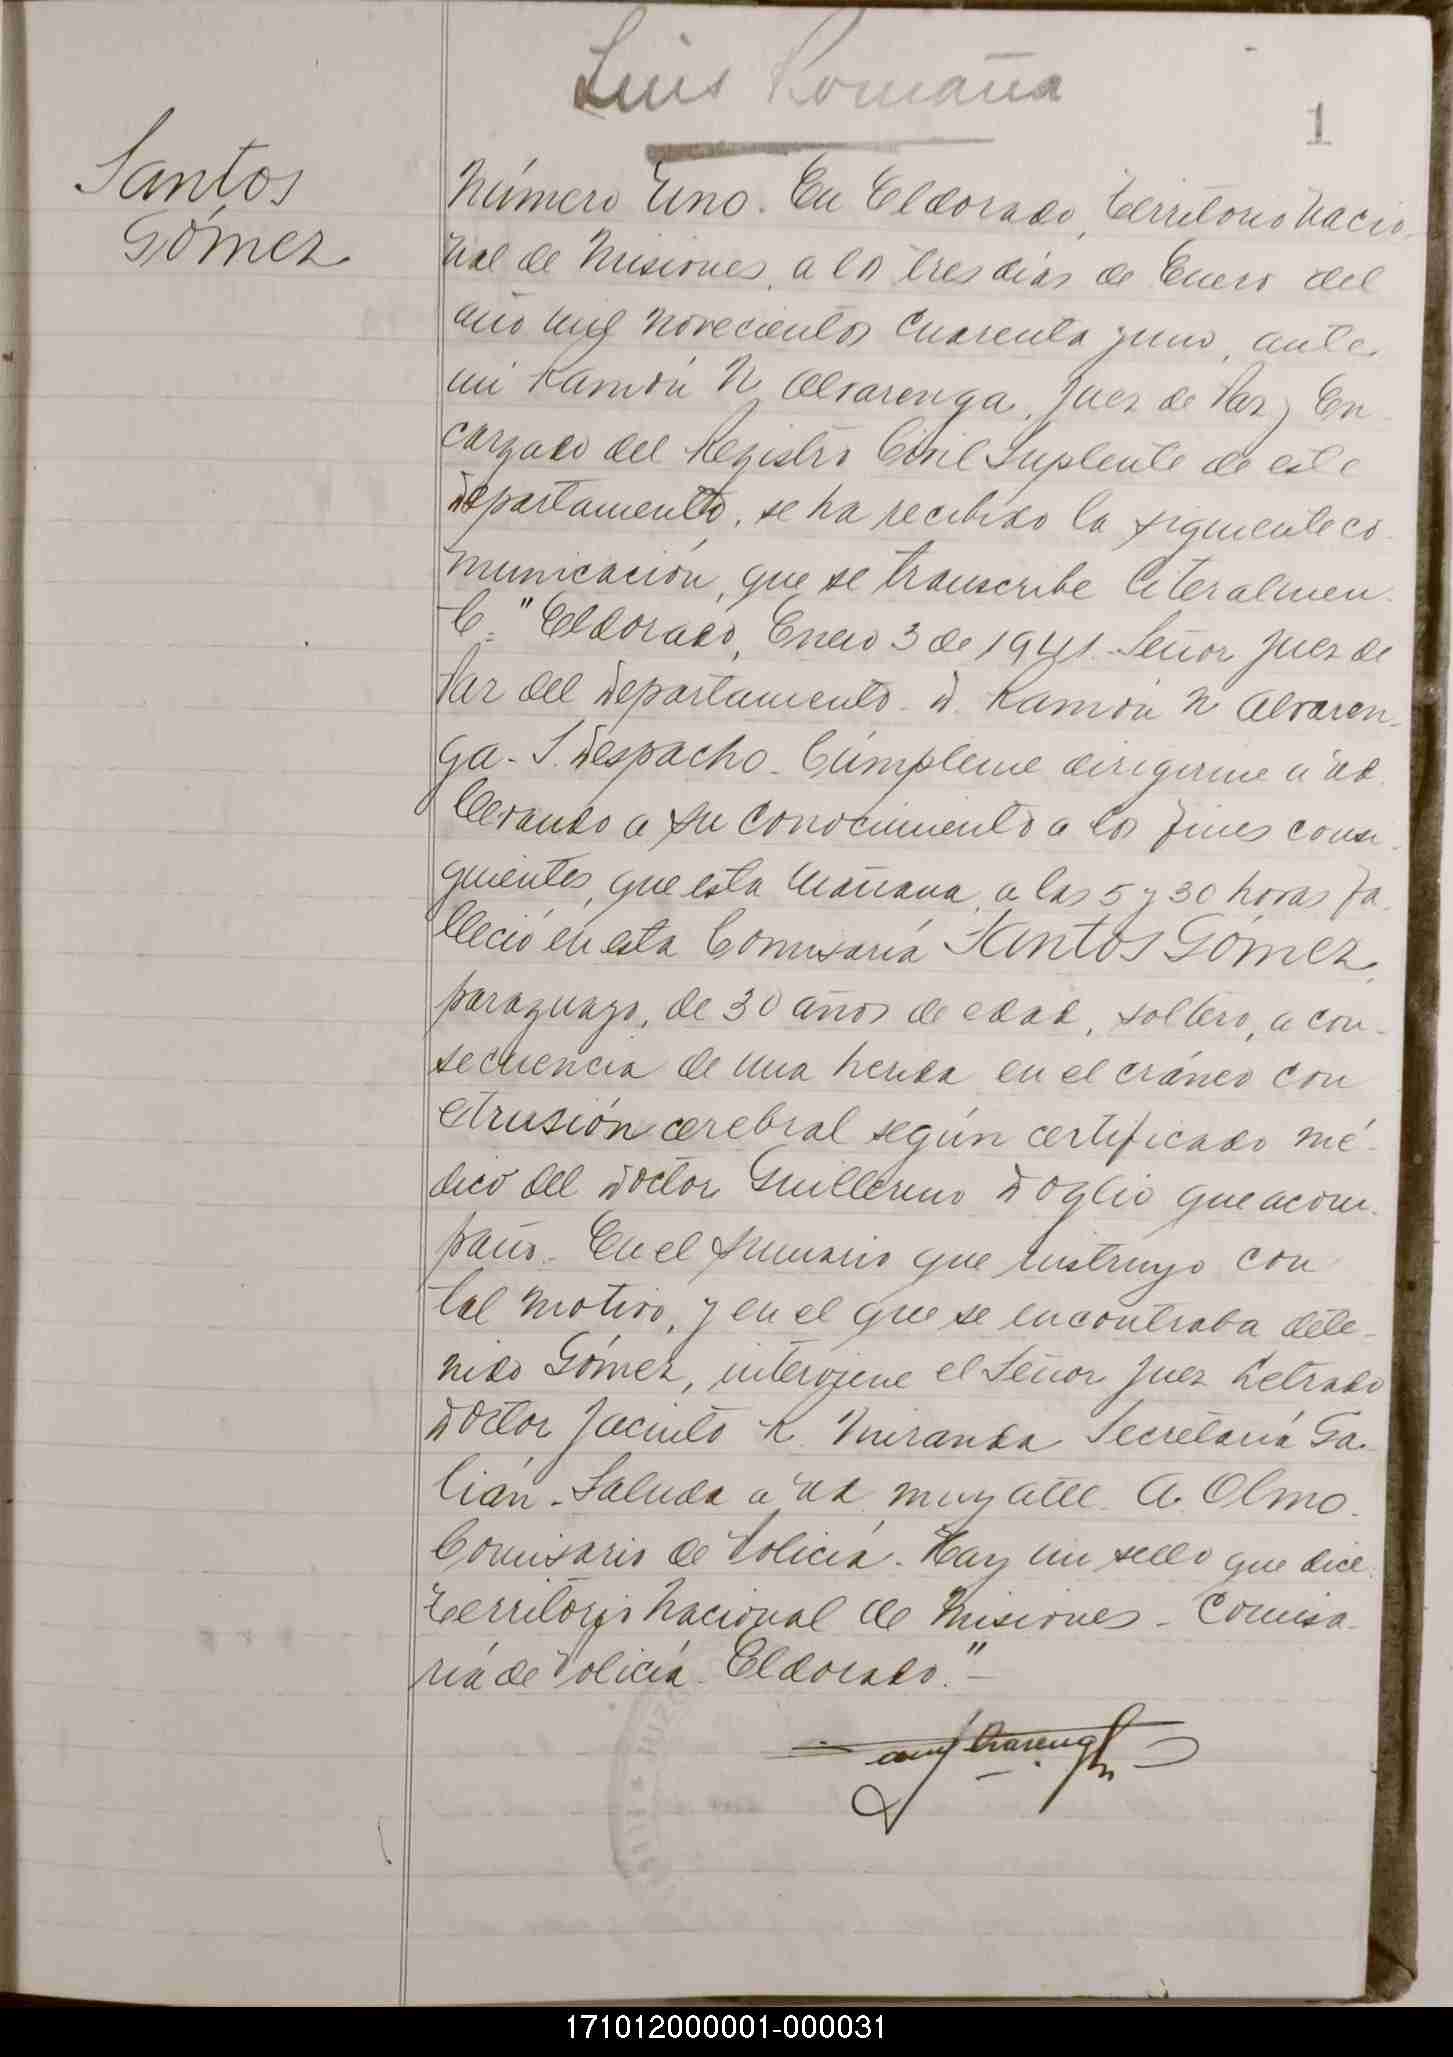 Luis Romaña
1
Santos
Gómez
Número Uno. En Eldorado, Territorio Nacio-
nal de Misiones, a los tres días de Enero del
año mil novecientos cuarenta y uno, ante
mi Ramón N. Alvarenga, Juez de Paz y En-
cargado del Registro Civil Suplente de este
Departamento, se ha recibido la siguiente co-
municación, que se transcribe literalmen-
te: "Eldorado, Enero 3 de 1941. Señor Juez de
Paz del Departamento. D. Ramón N. Alvaren-
ga. S. Despacho. Cúmpleme dirigirme a Ud.
llevando a su conocimiento a los fines consi-
guientes, que esta mañana, a las 5 y 30 horas fa-
lleció en esta Comisaría Santos Gómez,
paraguayo, de 30 años de edad, soltero, a con-
secuencia de una herida en el cráneo con
etrusión cerebral según certificado mé-
dico del Doctor Guillermo Doglio que acom-
paño. En el sumario que instruyo con
tal motivo, y en el que se encontraba dete-
nido Gómez, interviene el Señor Juez Letrado
Doctor Jacinto R. Miranda Secretaría Ga-
lián. Saluda a Ud. muy atte. A. Olmo.
Comisario de Policía. Hay un sello que dice:
Territorio Nacional de Misiones - Comisa-
ría de Policía. Eldorado."-
171012000001-000031